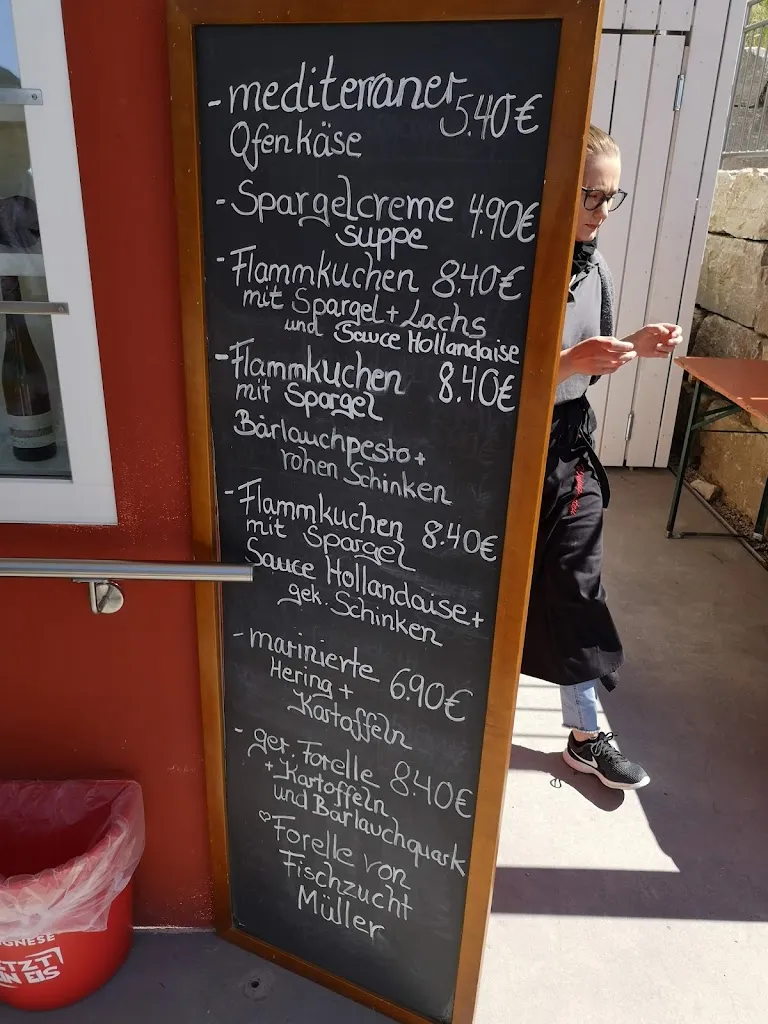 - mediterraner 5.40€
Ofenkäse
- Spargelcreme 4.90€
suppe
- Flammkuchen 8.40€
mit Spargel + Lachs
und Sauce Hollandaise
- Flammkuchen 8.40€
mit Spargel
Bärlauchpesto +
rohen Schinken
- Flammkuchen 8.40€
mit Spargel
Sauce Hollandaise +
gek. Schinken
- marinierte 6.90€
Hering +
Kartoffeln
- ger. Forelle 8.40€
+ Kartoffeln
und Bärlauchquark
♡ Forelle von
Fischzucht
Müller